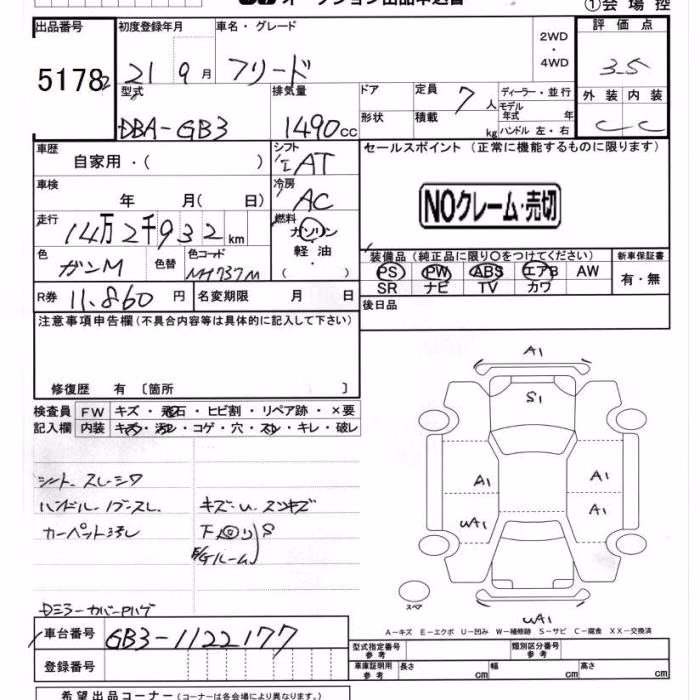 オークション出品申込書 ①会場控
出品番号 初度登録年月 車名・グレード 2WD ・ 4WD 評価点
51782 21 9月 フリード 3.5
型式 排気量 ドア 定員 7人 ディーラー・並行 外装 内装
DBA-GB3 1490cc 形状 積載 kg モデル年式 年 C C
ハンドル 左・右
車歴 自家用・( ) シフト AT セールスポイント (正常に機能するものに限ります)
車検 年 月( 日) 冷房 AC
NOクレーム・売切
走行 14万2千932km 燃料 ガソリン・軽油・( )
色 ガンM 色替 色コード NH737M
装備品 (純正品に限り〇をつけてください) 新車保証書
PS PW ABS エアB AW 有・無
SR ナビ TV カワ
R券 11,860円 名変期限 月 日 後日品
注意事項申告欄(不具合内容等は具体的に記入して下さい)
修復歴 有 〔箇所 〕
検査員 FW キズ・飛石・ヒビ割・リペア跡・×要
記入欄 内装 キズ・汚レ・コゲ・穴・スレ・キレ・破レ
A1
S1
シート スレ シワ A1 A1
ハンドル
キズ・U スリキズ
カーペット汚レ
下回り S
E/Gルーム
UA1 A1
Dミラーカバー
スペア
UA1
A-キズ E-エクボ U-凹み W-補修跡 S-サビ C-腐食 XX-交換済
車台番号 GB3-1122177
型式指定番号 参考 類別区分番号 参考
登録番号
車庫証明用 参考 長さ cm 幅 cm 高さ cm
希望出品コーナー (コーナーは各会場により異なります。)